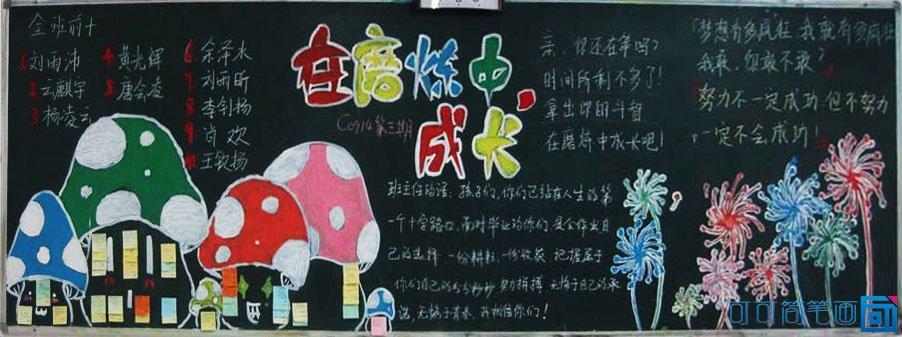 全班前十
1 刘雨沛
2 云麒宇
3 杨凌云
4 黄光辉
5 唐会凌
6 余泽水
7 刘雨昕
8 李钊扬
9 肖欢
10 王钦扬
在磨炼中
成长
C0914第三期
亲，你还在等吗？
时间所剩不多了！
拿出你的斗智
在磨炼中成长吧！
"梦想有多疯狂，我就有多疯狂
我敢，你敢不敢？
努力不一定成功，但不努力
一定不会成功！
班主任的话：孩子们，你们已站在人生的第
一个十字路口，面对毕业的你们，是会作出自
己的选择，一份耕耘，一份收获，把握属于
你们自己的分分秒秒，努力拼搏，无悔于自己的承
诺，无悔于青春，我相信你们！
可可简笔画